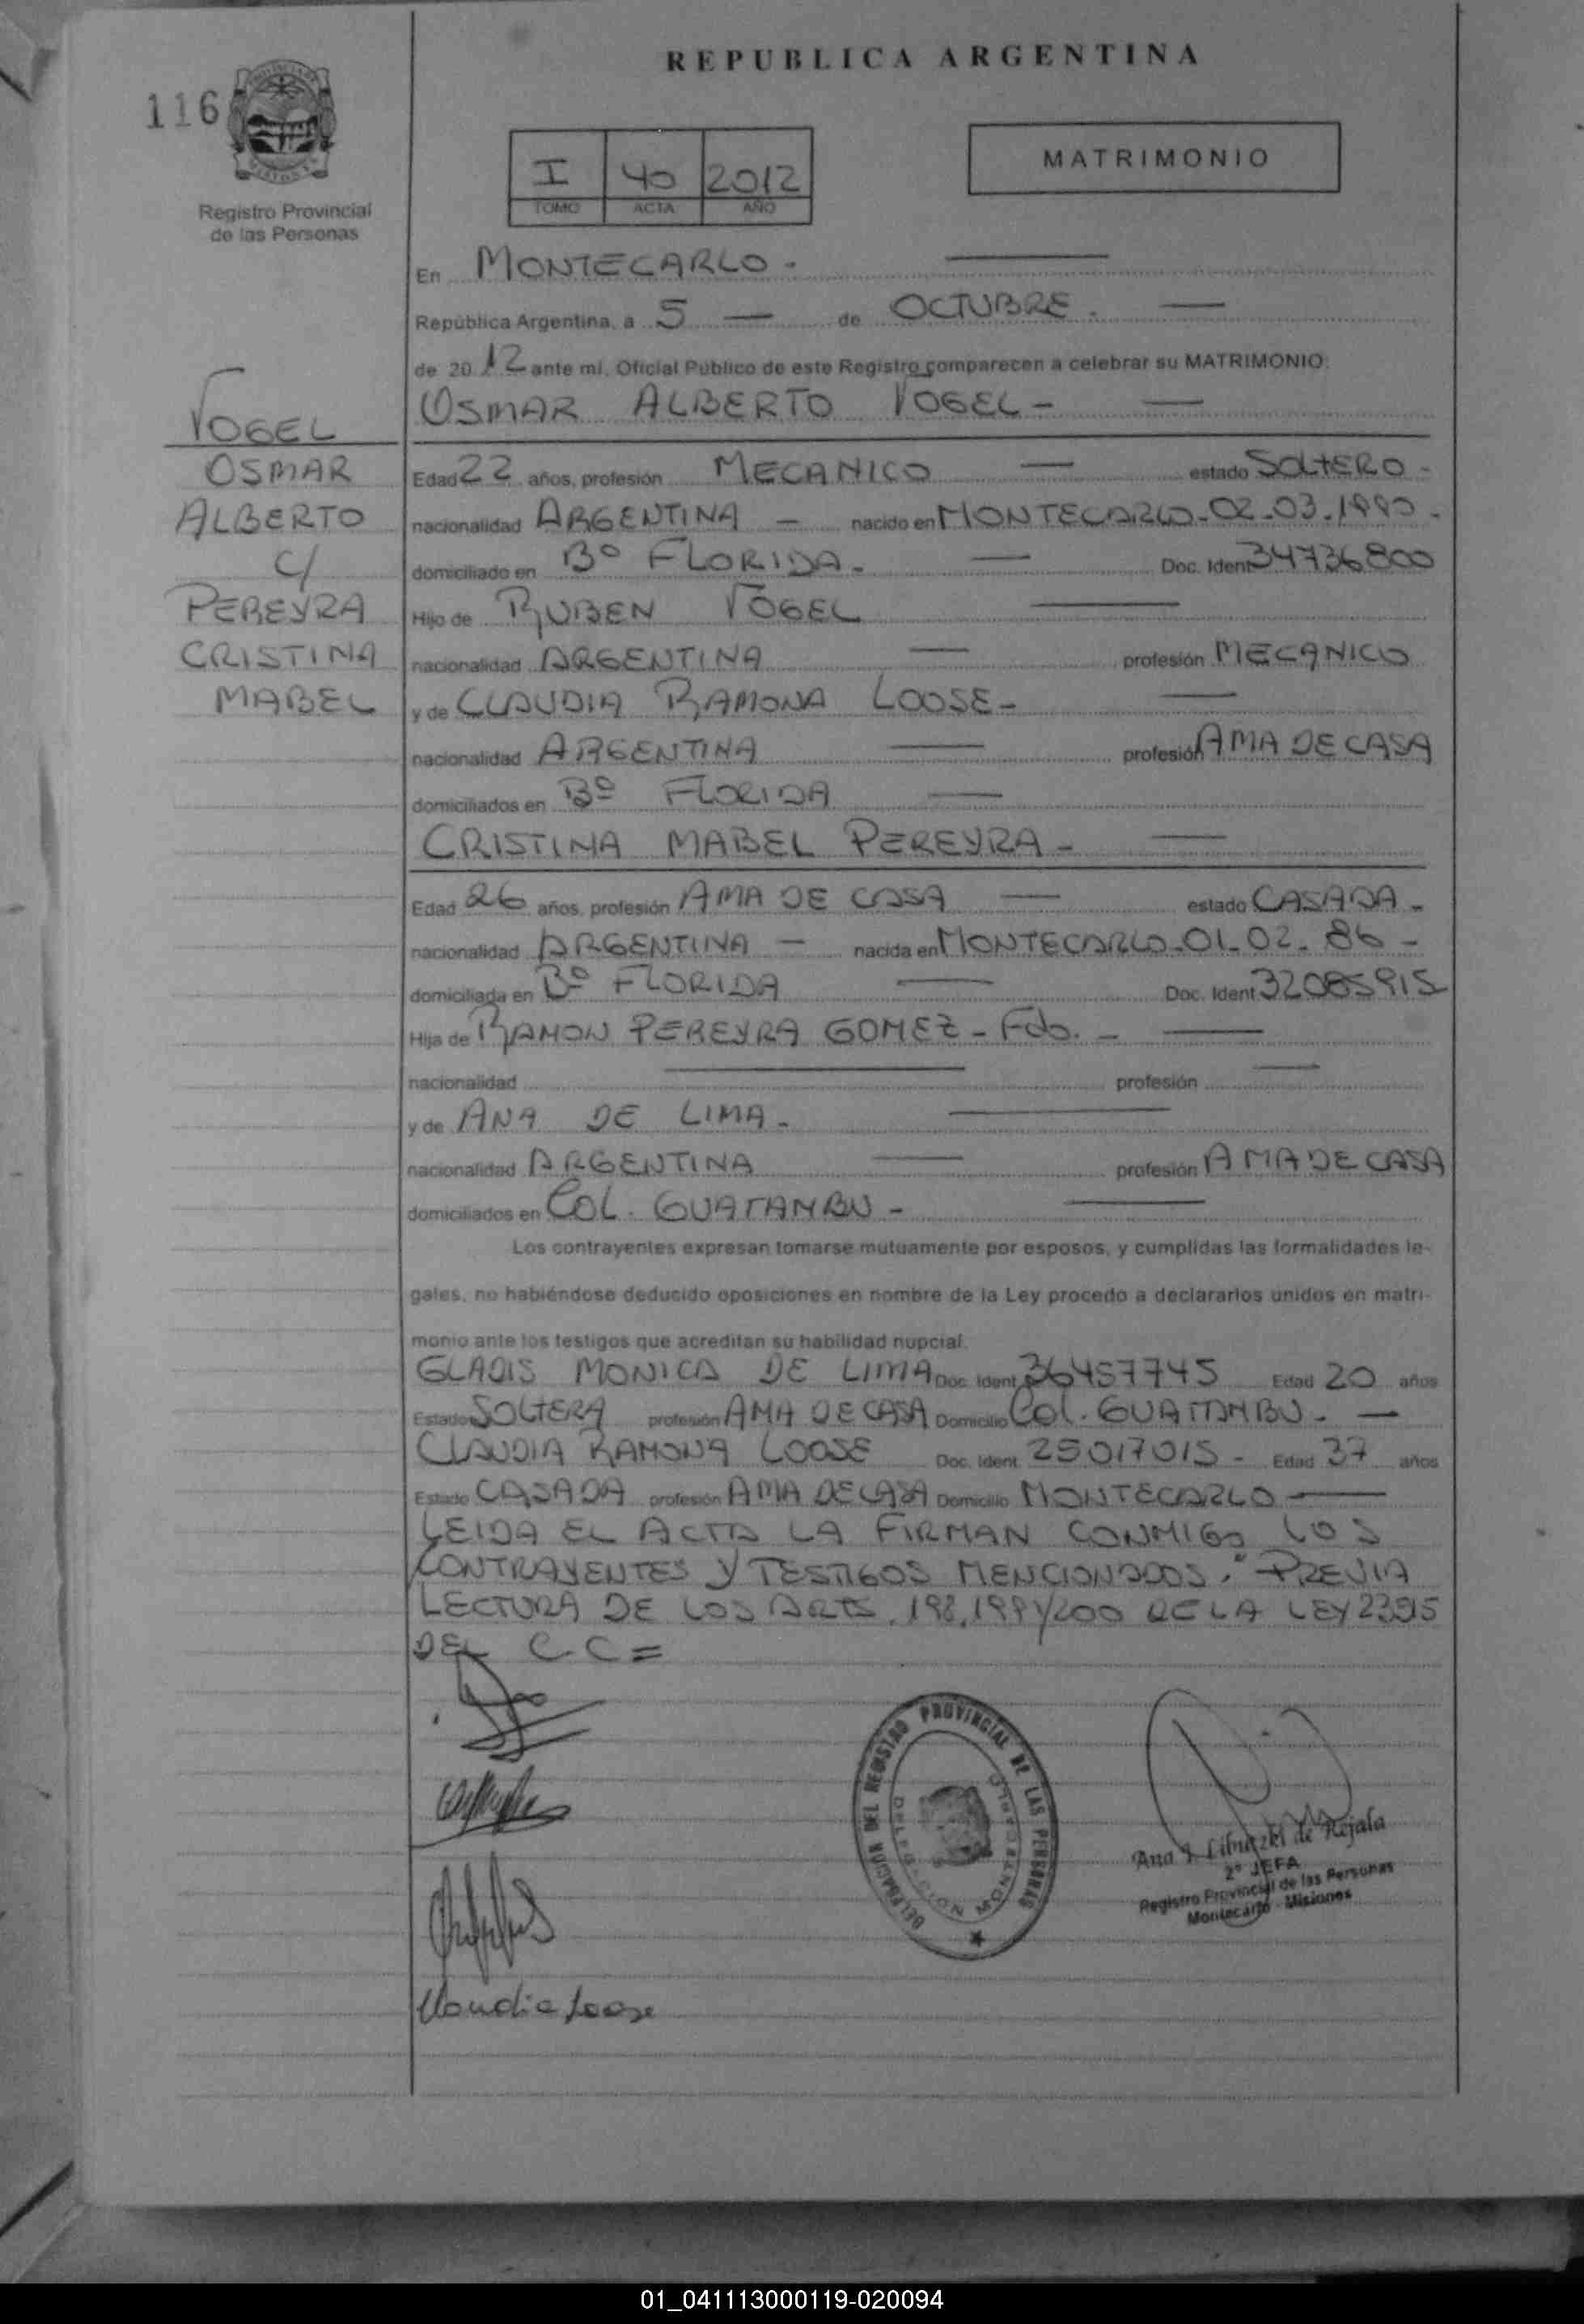 REPUBLICA ARGENTINA
116
Registro Provincial
de las Personas
I 40 2012
TOMO ACTA AÑO
MATRIMONIO
En MONTECARLO -
República Argentina, a 5 — de OCTUBRE. —
de 2012 ante mí, Oficial Público de este Registro comparecen a celebrar su MATRIMONIO:
OSMAR ALBERTO VOGEL - —
VOGEL
OSMAR
ALBERTO
C/
PEREYRA
CRISTINA
MABEL
Edad 22 años, profesión MECANICO — estado SOLTERO -
nacionalidad ARGENTINA — nacido en MONTECARLO-02-03-1990-
domiciliado en Bº FLORIDA. — Doc. Ident 34736800
Hijo de RUBEN VOGEL —
nacionalidad ARGENTINA — profesión MECANICO
y de CLAUDIA RAMONA LOOSE- —
nacionalidad ARGENTINA — profesión AMA DE CASA
domiciliados en Bº FLORIDA —
CRISTINA MABEL PEREYRA - —
Edad 26 años, profesión AMA DE CASA — estado CASADA -
nacionalidad ARGENTINA — nacida en MONTECARLO-01-02-86 -
domiciliada en Bº FLORIDA — Doc. Ident 32085915
Hija de RAMON PEREYRA GOMEZ - Fdo. - —
nacionalidad — profesión —
y de ANA DE LIMA - —
nacionalidad ARGENTINA — profesión AMA DE CASA
domiciliados en COL. GUATAMBU - —
Los contrayentes expresan tomarse mutuamente por esposos, y cumplidas las formalidades le-
gales, no habiéndose deducido oposiciones en nombre de la Ley procedo a declararlos unidos en matri-
monio ante los testigos que acreditan su habilidad nupcial.
GLADIS MONICA DE LIMA Doc. Ident. 36457745 Edad 20 años
Estado SOLTERA profesión AMA DE CASA Domicilio COL. GUATAMBU. —
CLAUDIA RAMONA LOOSE Doc. Ident. 25017015 - Edad 37 años
Estado CASADA profesión AMA DE CASA Domicilio MONTECARLO —
LEIDA EL ACTA LA FIRMAN CONMIGO LOS
CONTRAYENTES Y TESTIGOS MENCIONADOS." PREVIA
LECTURA DE LOS ARTS. 198, 199 Y 200 DE LA LEY 23515
DEL C.C =
DELEGACION DEL REGISTRO PROVINCIAL DE LAS PERSONAS
DELEGACION MONTECARLO
de Rejala
2º JEFA
Registro Provincial de las Personas
Montecarlo - Misiones
Claudia Loose
01_041113000119-020094